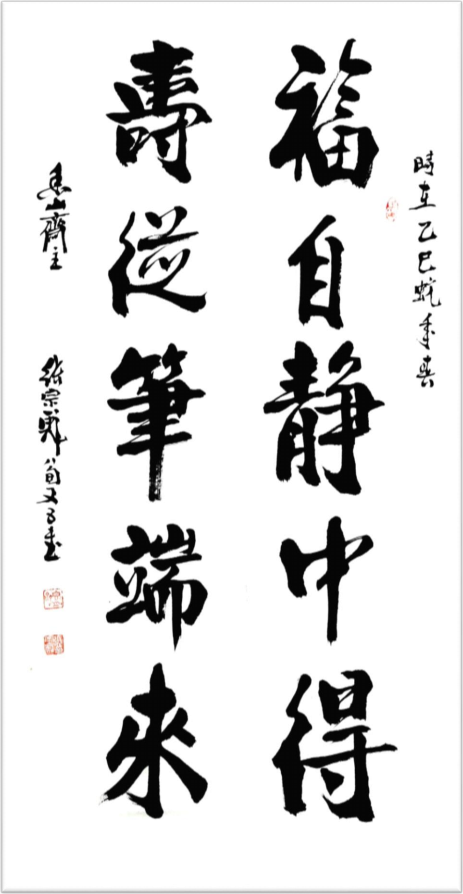 時在乙巳蛇年春
福自靜中得
壽從筆端來
香山齋主
宗 八旬又五書